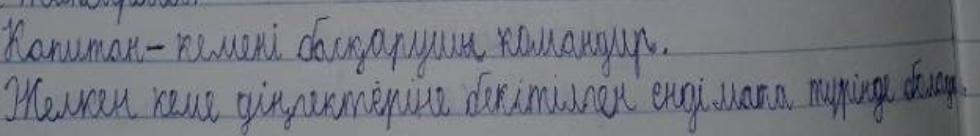 Капитан – кемені басқарушы командир.
Желкен кеме діңгектеріне бекітілген енді мата түрінде болады.